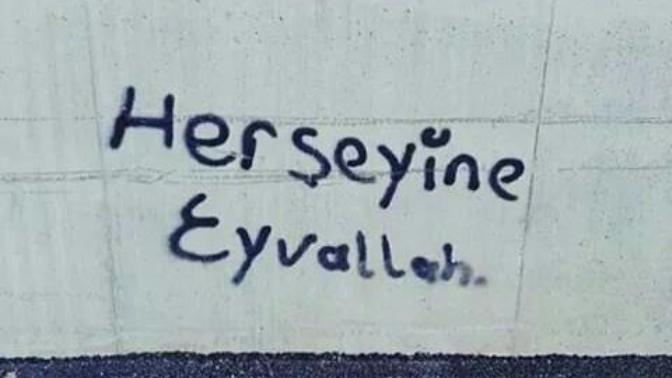 Herşeyine
Eyvallah.